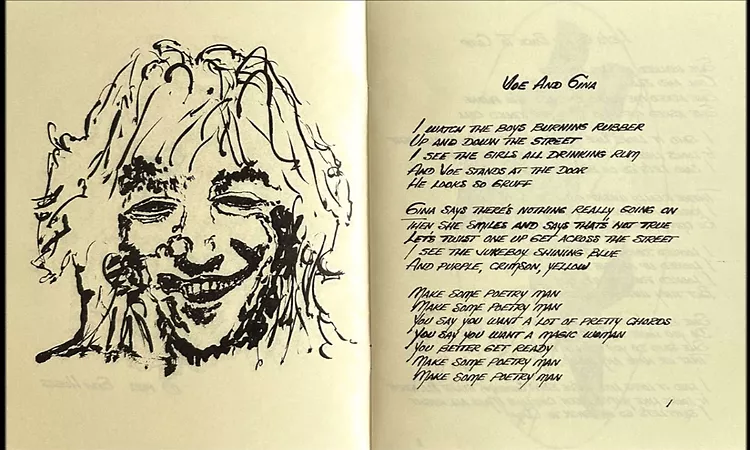 Joe And Gina
I WATCH THE BOYS BURNING RUBBER
UP AND DOWN THE STREET
I SEE THE GIRLS ALL DRINKING RUM
AND JOE STANDS AT THE DOOR
HE LOOKS SO GRUFF
GINA SAYS THERE'S NOTHING REALLY GOING ON
WEN SHE SMILES AND SAYS THATS NOT TRUE
LETS TWIST ONE UP GET ACROSS THE STREET
I SEE THE JUKEBOX SHINING BLUE
AND PURPLE, CRIMSON, YELLOW
MAKE SOME POETRY MAN
MAKE SOME POETRY MAN
YOU SAY YOU WANT A LOT OF PRETTY CHORDS
YOU SAY YOU WANT A MAGIC WOMAN
YOU BETTER GET READY
MAKE SOME POETRY MAN
MAKE SOME POETRY MAN
1